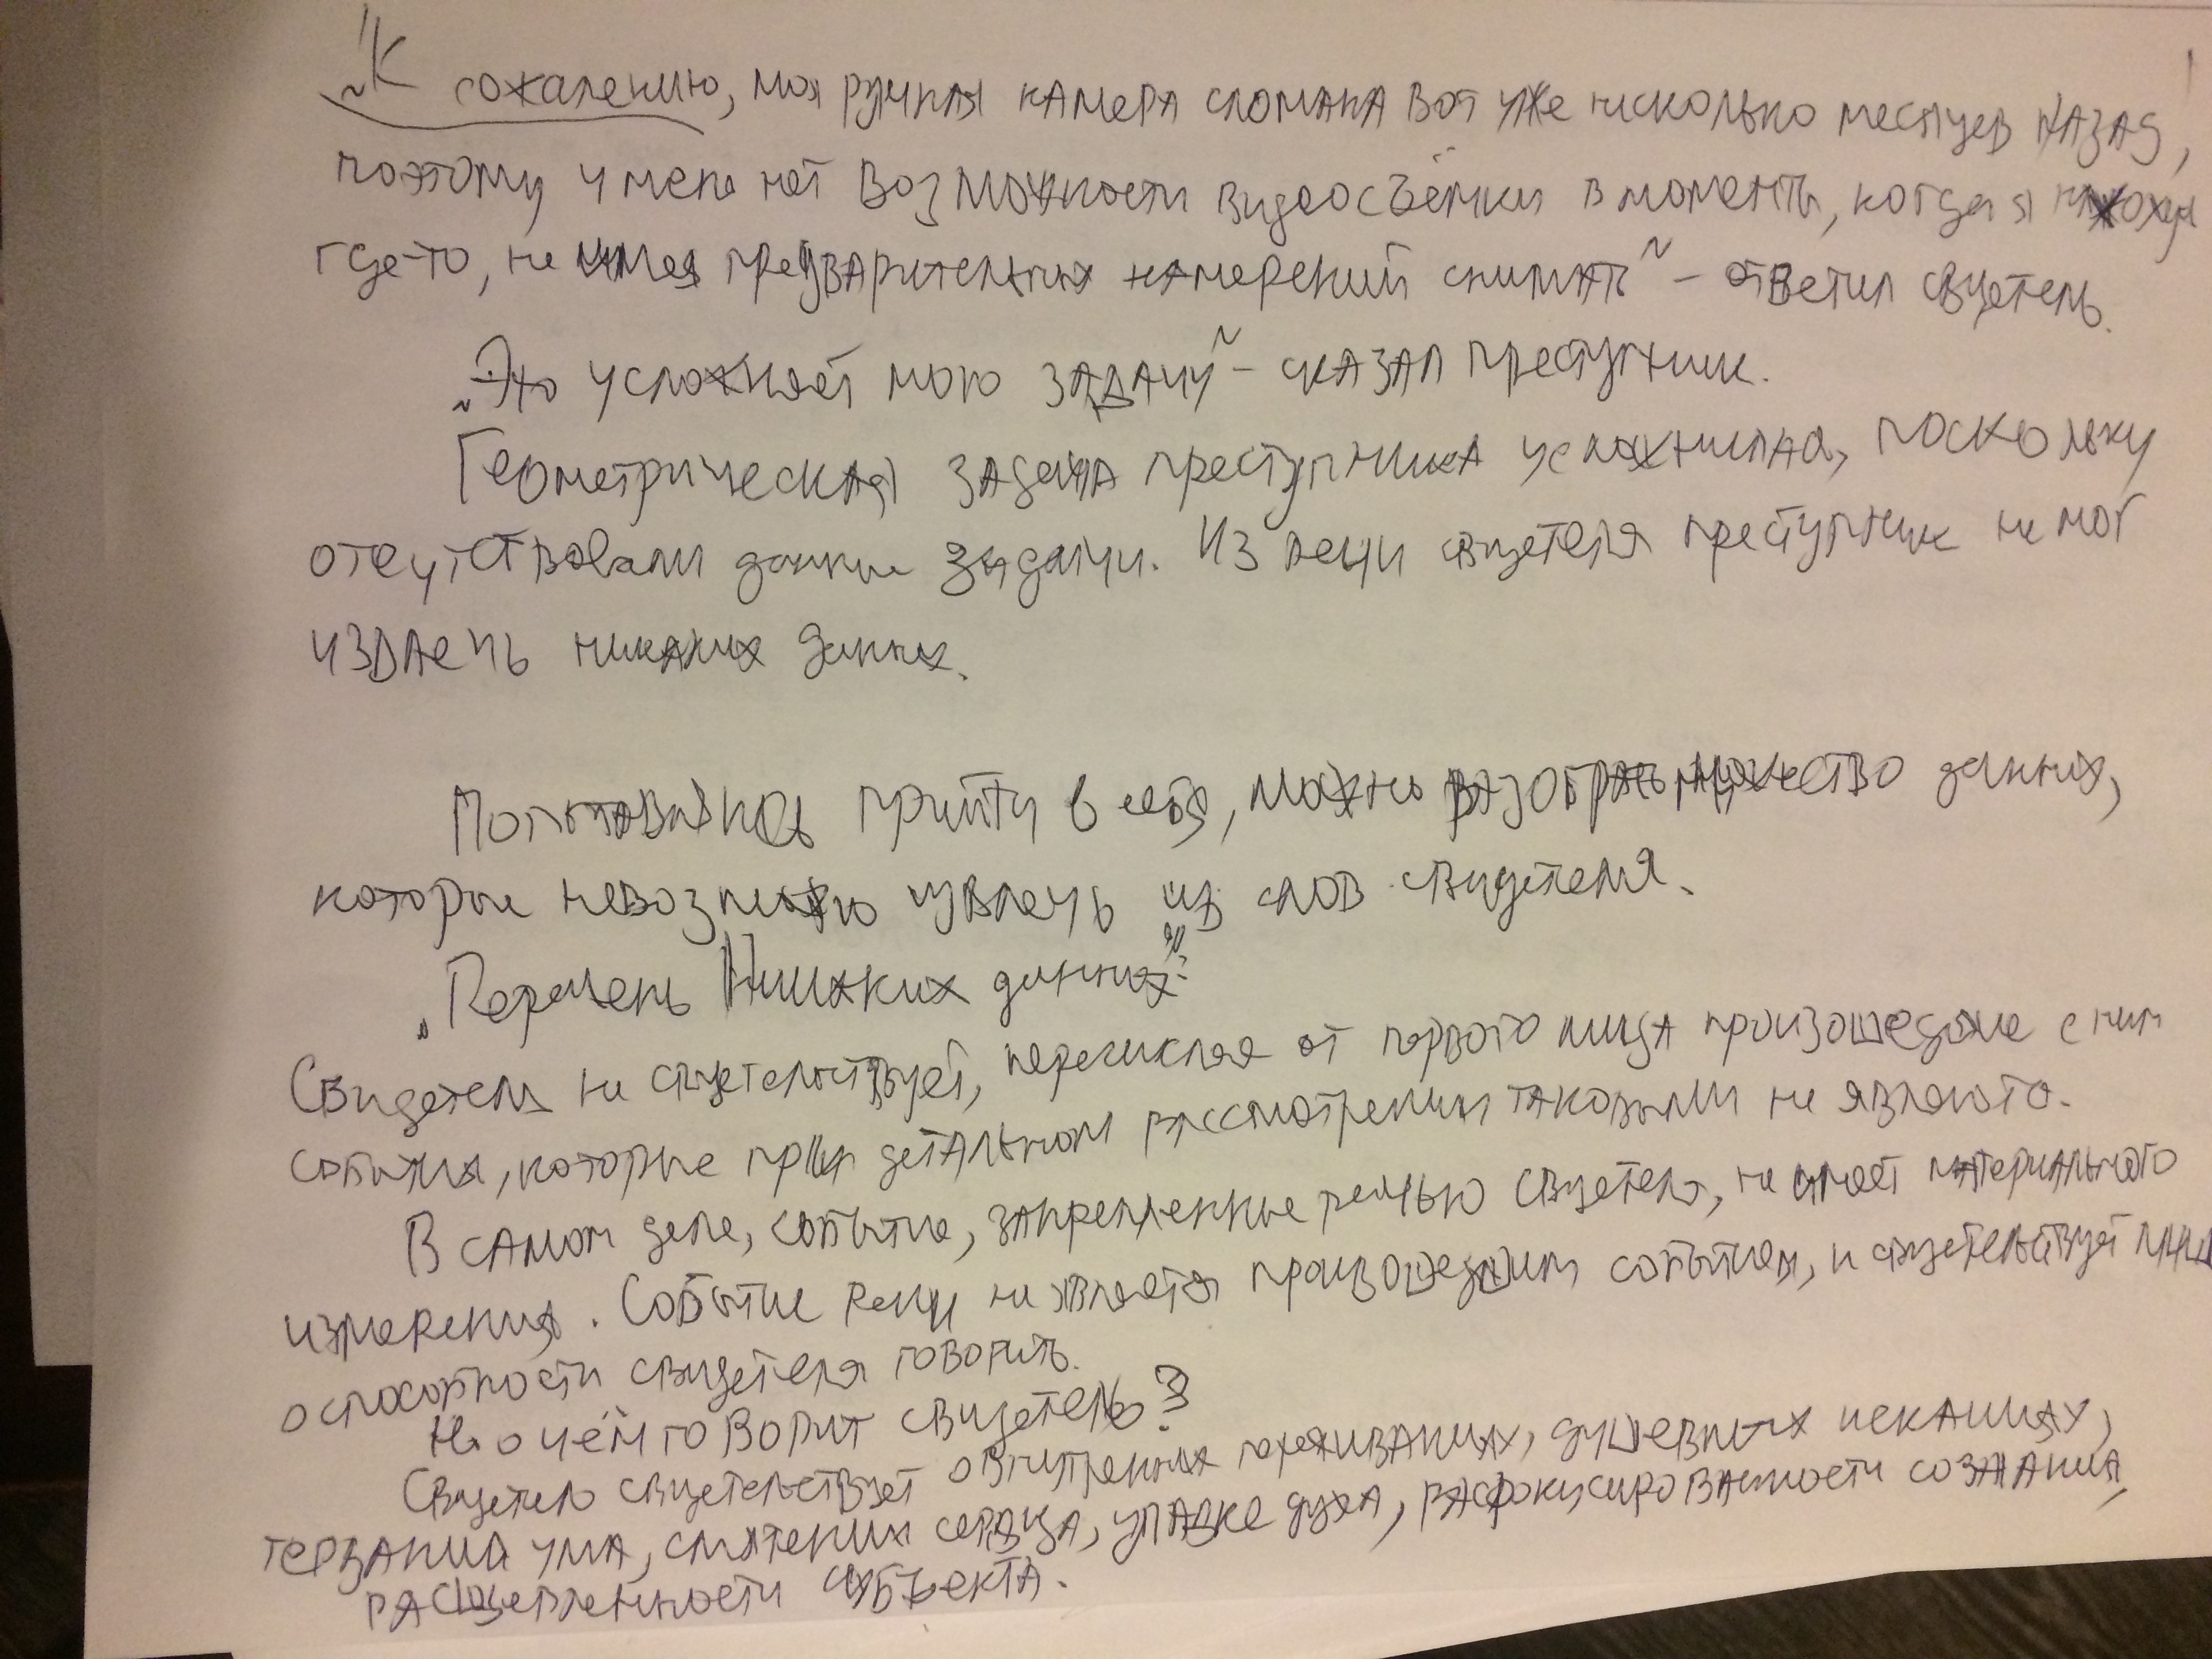 „К сожалению, моя ручная камера сломана вот уже несколько месяцев назад,
поэтому у меня нет возможности видеосъёмки в моменты, когда я нахожусь
где-то, не имея предварительных намерений снимать" – ответил свидетель.
„Это усложняет мою задачу" – сказал преступник.
Геометрическая задача преступника усложнилась, поскольку
отсутствовали данные задачи. Из речи свидетеля преступник не мог
извлечь никаких данных.
прийти в себя, можно разобрать множество данных,
которые невозможно извлечь из слов свидетеля.
„Перечень Никаких данных":
Свидетель не свидетельствует, перечисляя от первого лица произошедшие с ним
события, которые при детальном рассмотрении таковыми не являются.
В самом деле, событие, закрепленное речью свидетеля, не имеет материального
измерения. Событие речи не является произошедшим событием, и свидетельствует лишь
о способности свидетеля говорить.
Но о чём говорит свидетель?
Свидетель свидетельствует о внутренних переживаниях, душевных исканиях,
терзаний ума, смятении сердца, упадке духа, расфокусированности сознания,
расщепленности субъекта.